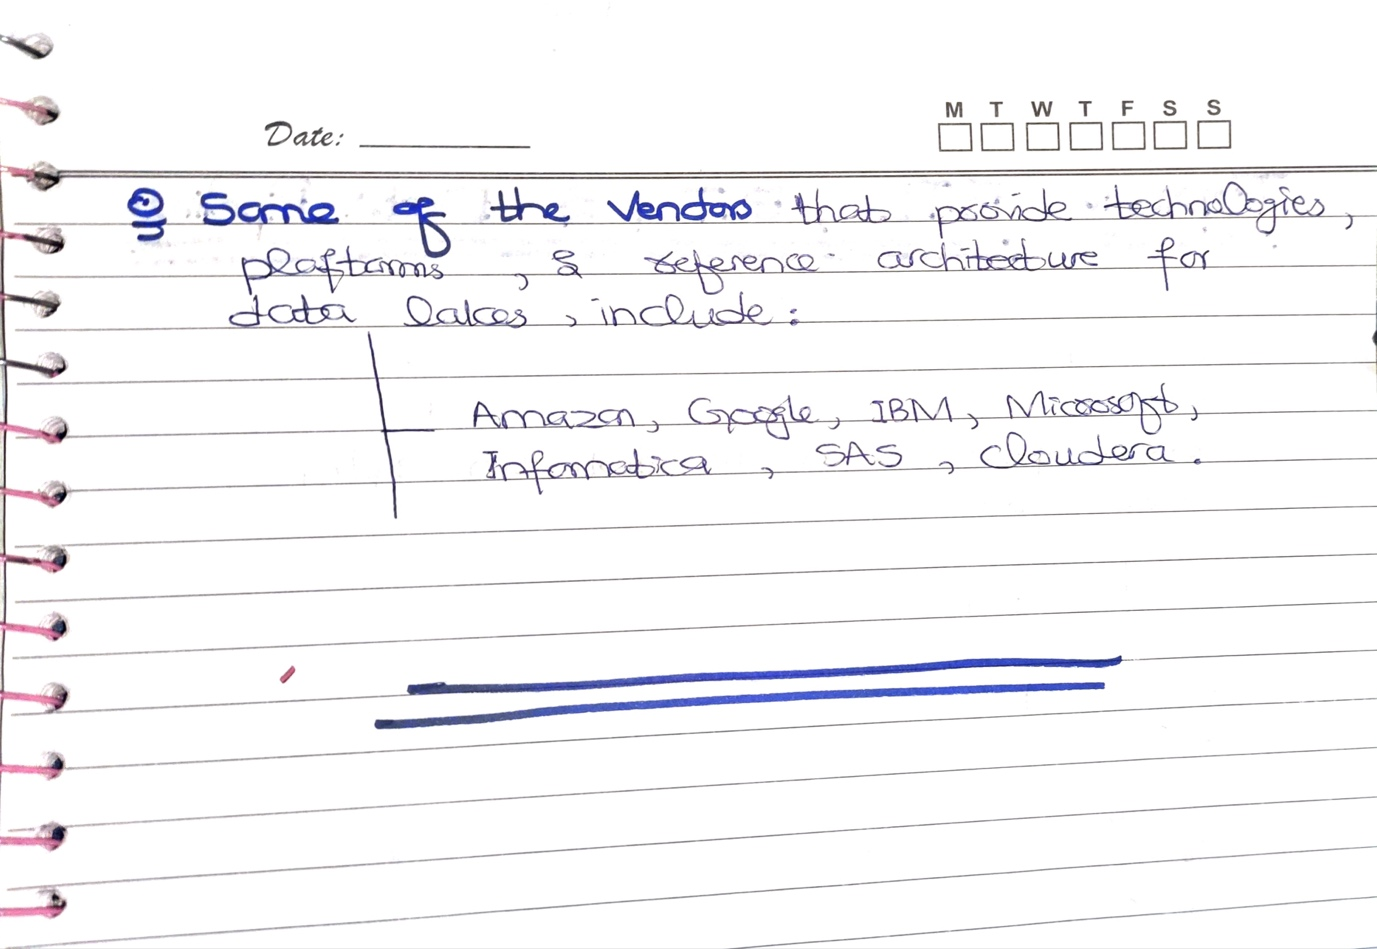 M T W T F S S
Date:
Some of the Vendors that provide technologies,
plaftorms, & reference architecture for
data lakes, include:
Amazon, Google, IBM, Microsoft,
Infomatica, SAS, Cloudera.